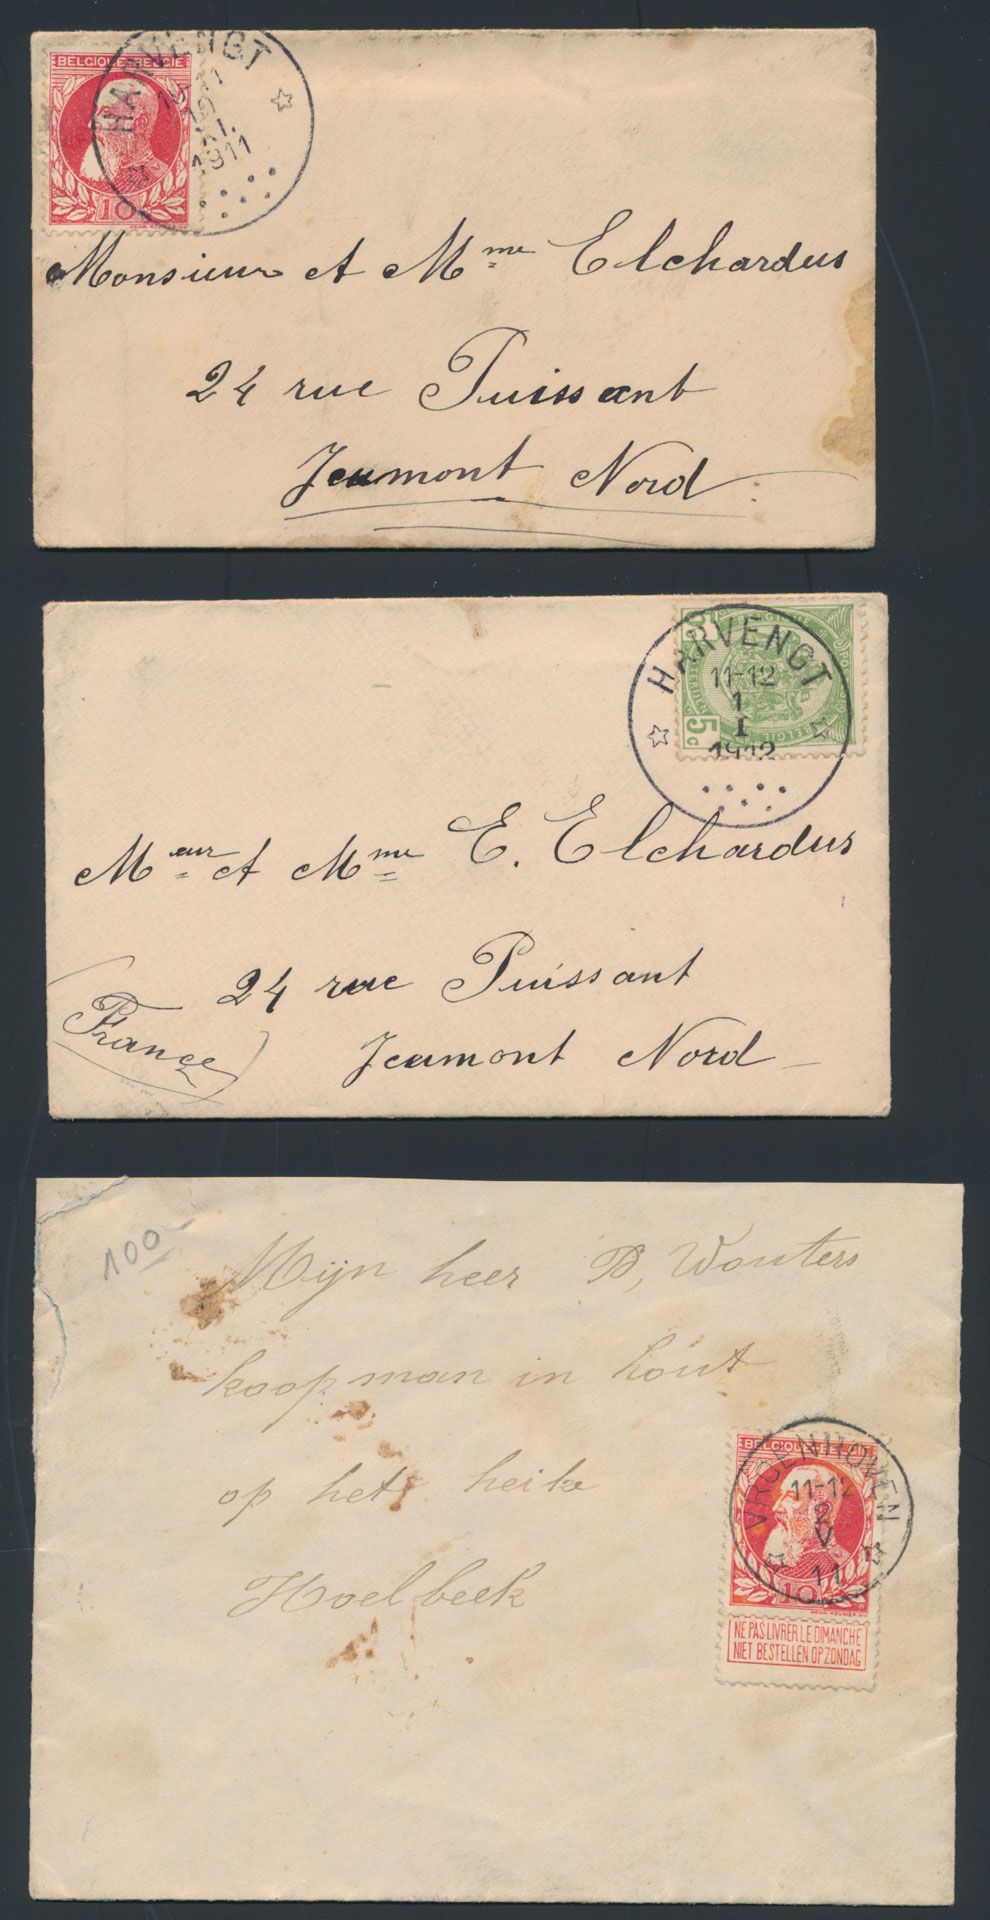 BELGIQUE BELGIE
10
HARVENGT
1911
Monsieur et Mme Elchardus
24 rue Puissant
Jeumont Nord
HARVENGT
11-12
1
I
1912
5c
BELGIE
Meur et Mme E. Elchardus
24 rue Puissant
(France)
Jeumont Nord
100
Mijn heer B, Wouters
koopman in hout
op het heike
Hoelbeek
VROENHOVEN
11-12
2
V
11
10
NE PAS LIVRER LE DIMANCHE
NIET BESTELLEN OP ZONDAG